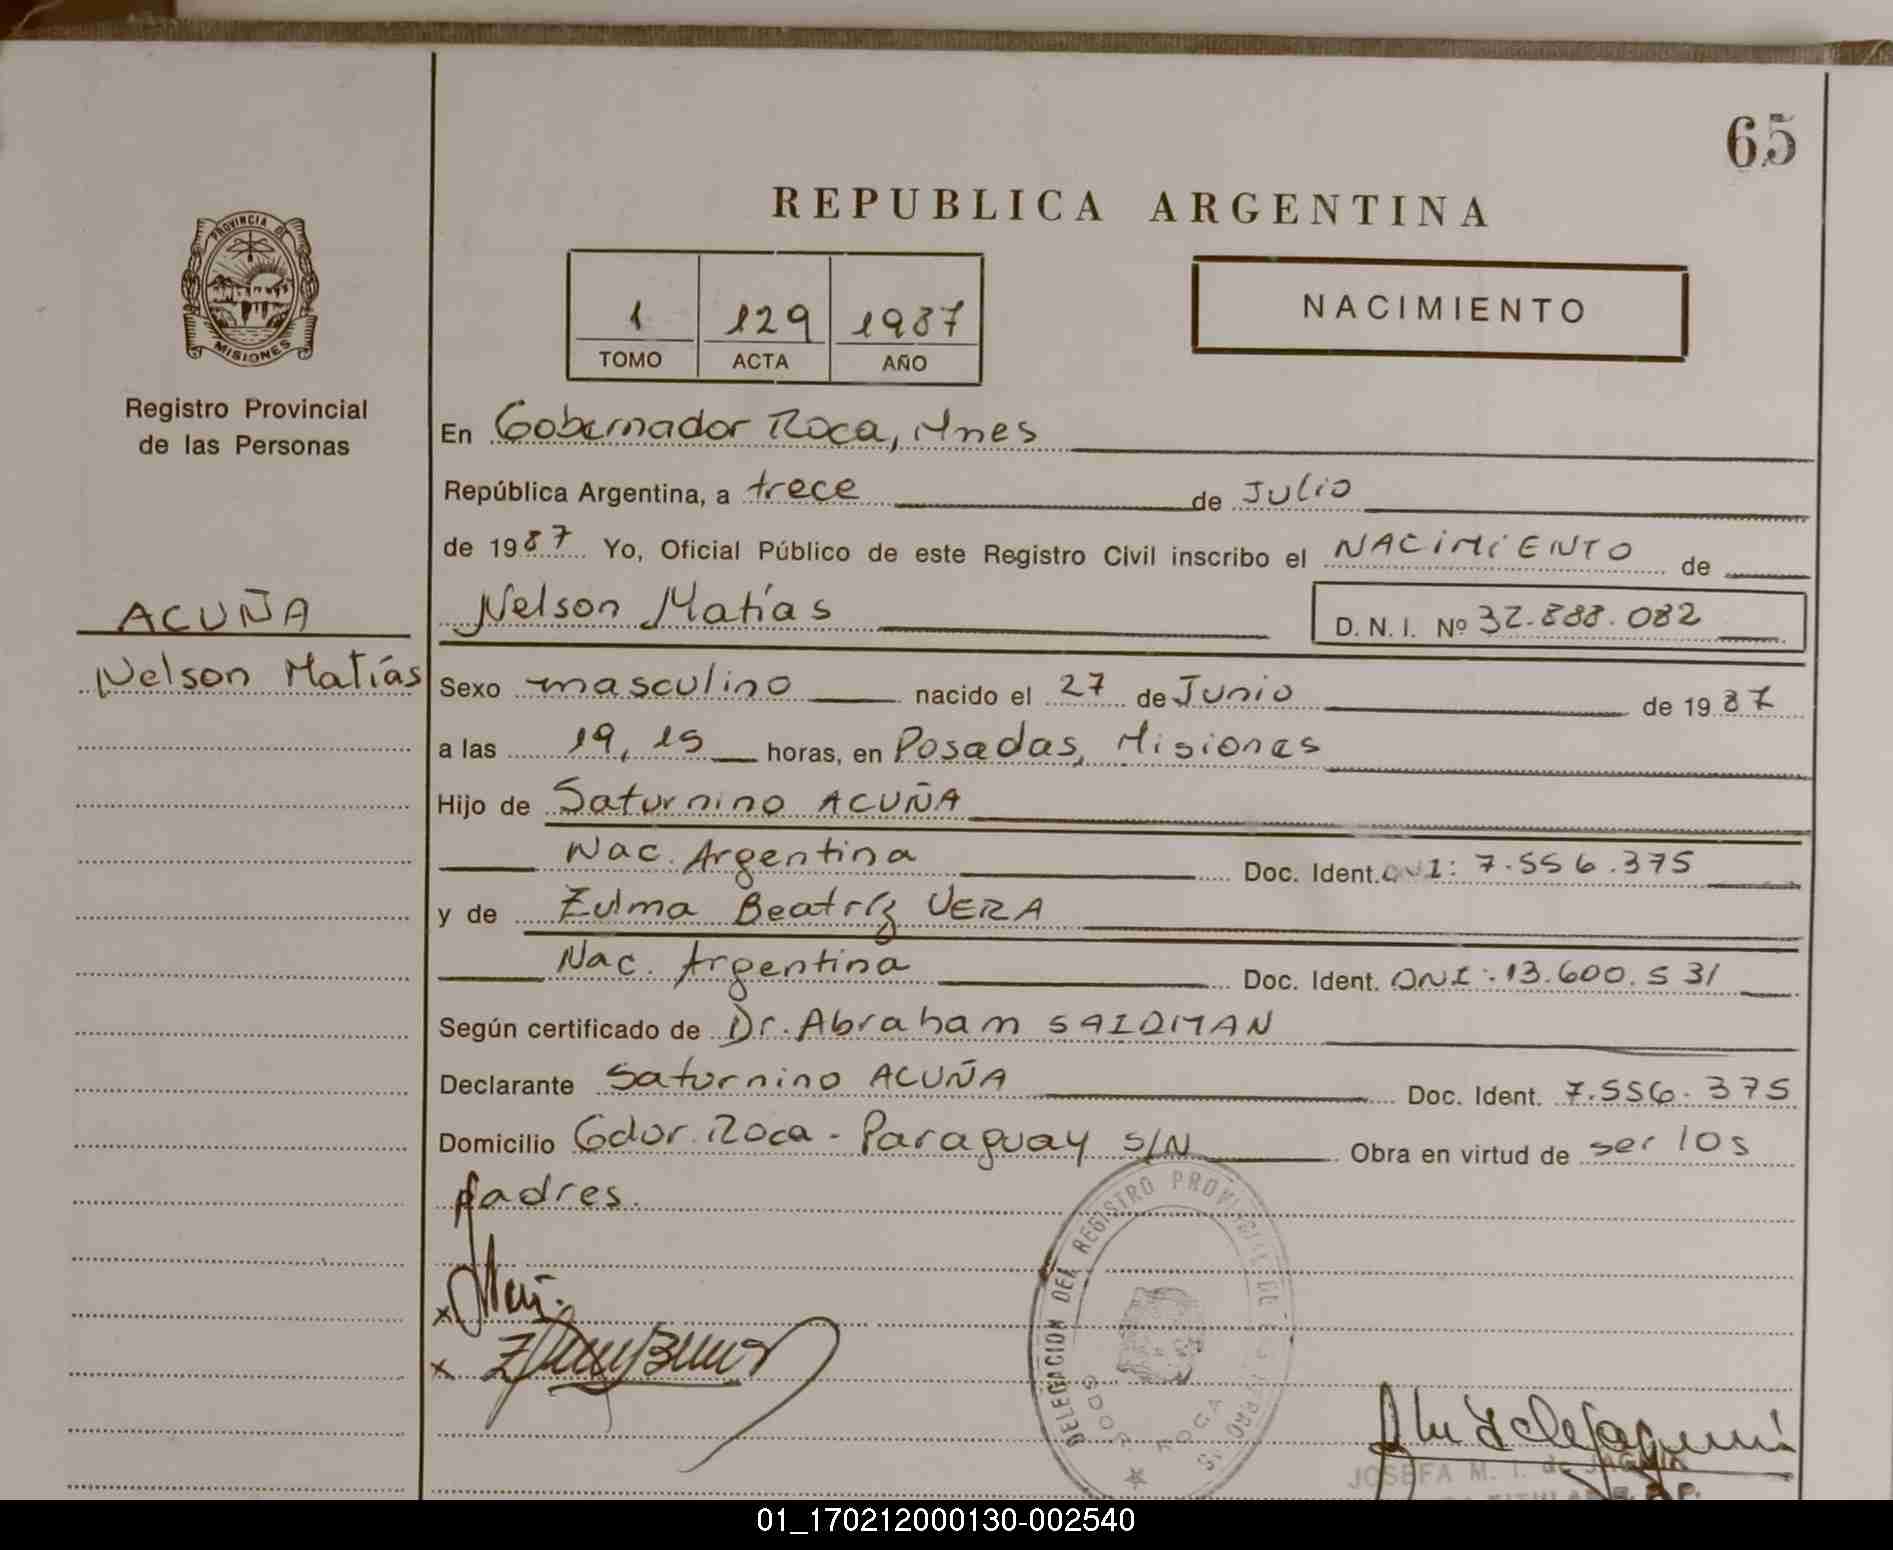 65
REPUBLICA ARGENTINA
PROVINCIA DE
MISIONES
1 129 1987
TOMO ACTA AÑO
NACIMIENTO
Registro Provincial
de las Personas
ACUÑA
Nelson Matías
En Gobernador Roca, Mnes
República Argentina, a trece de Julio
de 1987 Yo, Oficial Público de este Registro Civil inscribo el NACIMIENTO de
Nelson Matías D.N.I. Nº 32.888.082
Sexo masculino nacido el 27 de Junio de 1987
a las 19,15 horas, en Posadas, Misiones
Hijo de Saturnino ACUÑA
Nac. Argentina Doc. Ident. DNI: 7.556.375
y de Zulma Beatríz VERA
Nac. Argentina Doc. Ident. DNI: 13.600.531
Según certificado de Dr. Abraham SAIDMAN
Declarante Saturnino ACUÑA Doc. Ident. 7.556.375
Domicilio Gdor. Roca - Paraguay S/N Obra en virtud de ser los
padres.
DELEGACION DEL REGISTRO PROVINCIAL DE
GDOR ROCA
JOSEFA M. I. de JAGMIN
01_170212000130-002540